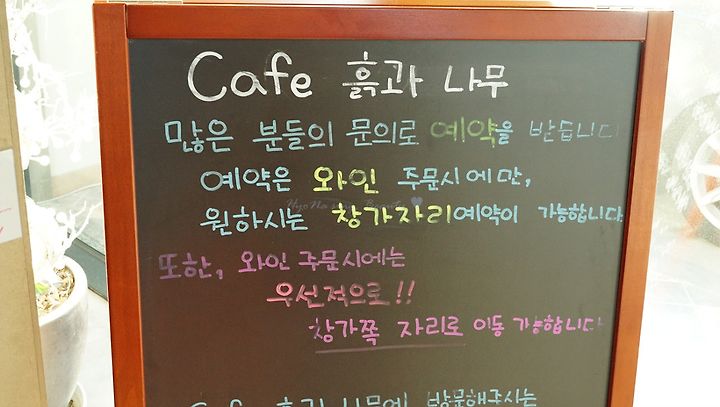 Cafe 흙과 나무
많은 분들의 문의로 예약을 받듭니다
예약은 와인 주문시에만,
원하시는 창가자리예약이 가능합니다
또한, 와인 주문시에는
우선적으로!!
창가쪽 자리로 이동 가능합니다
Cafe 흙과 나무에 방문해주시는